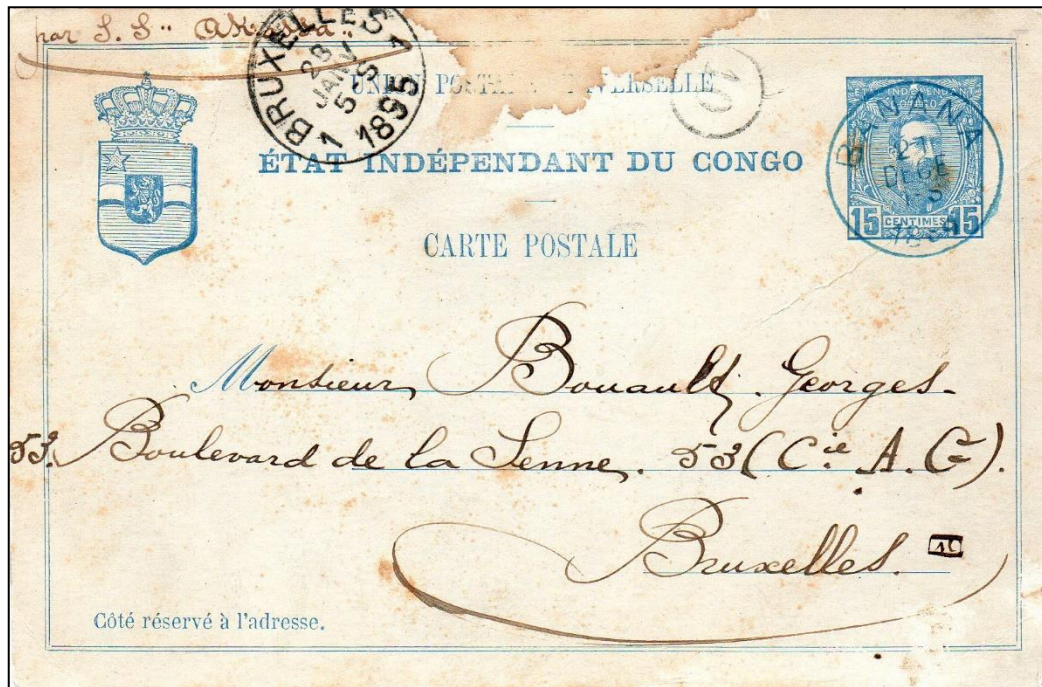 par S. S. "Akassa"
BRUXELLES 1
28
JANV
5 - S
1895
1
UNION POSTALE UNIVERSELLE
ÉTAT INDÉPENDANT DU CONGO
CARTE POSTALE
BANANA
DECE
15 CENTIMES 15
Monsieur Bouault, Georges-
53. Boulevard de la Senne. 53 (Cie A. G).
Bruxelles.
Côté réservé à l'adresse.